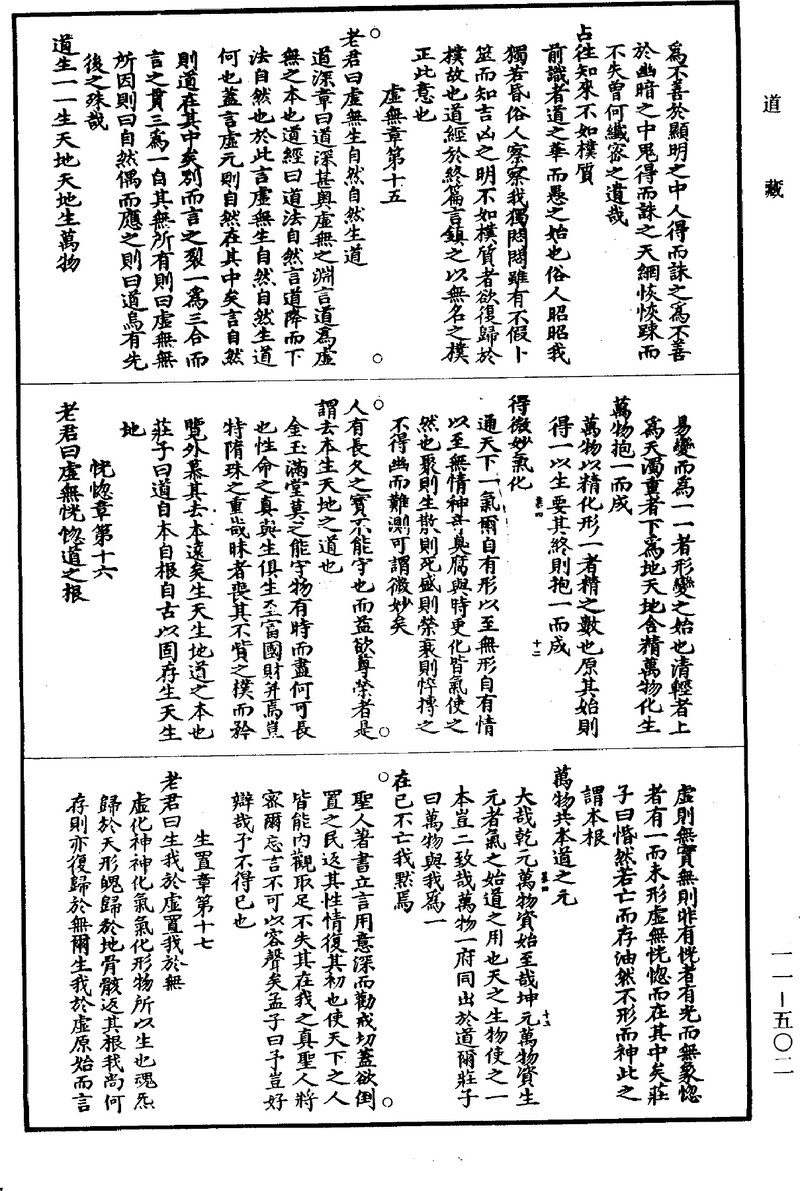 道藏
為不善於顯明之中人得而誅之為不善
於幽暗之中鬼得而誅之天網恢恢踈而
不失曾何纖宻之遺哉
占往知來不如樸質
前識者道之華而愚之始也俗人昭昭我
獨若昏俗人察察我獨悶悶雖有不假卜
筮而知吉凶之明不如樸質者欲復歸於
樸故也道經於終篇言鎮之以無名之樸
正此意也
虛無章第十五
老君曰虛無生自然自然生道
道深章曰道深甚奧虛無之淵言道為虛
無之本也道經曰道法自然言道降而下
法自然也於此言虛無生自然自然生道
何也蓋言虛元則自然在其中矣言自然
則道在其中矣別而言之裂一為三合而
言之貫三為一自其無所有則曰虛無無
所因則曰自然偶而應之則曰道烏有先
後之殊哉
道生一一生天地天地生萬物
易變而為一一者形變之始也清輕者上
為天濁重者下為地天地含精萬物化生
萬物抱一而成
萬物以精化形一者精之數也原其始則
得一以生要其終則抱一而成
得微妙氣化
通天下一氣爾自有形以至無形自有情
以至無情神奇臭腐與時更化皆氣使之
然也聚則生散則死盛則榮衰則悴摶之
不得幽而難測可謂微妙矣
人有長久之寶不能守也而益欲尊榮者是
謂去本生天地之道也
金玉滿堂莫之能守物有時而盡何可長
也性命之真與生俱生至富國財并焉豈
特隋珠之重哉昧者喪其不貲之樸而矜
覽外慕其去本遠矣生天生地道之本也
莊子曰道自本自根自古以固存生天生
地
恍惚章第十六
老君曰虛無恍惚道之根
虛則無實無則非有恍者有光而無象惚
者有一而未形虛無恍惚而在其中矣莊
子曰惛然若亡而存油然不形而神此之
謂本根
萬物共本道之元
大哉乾元萬物資始至哉坤元萬物資生
元者氣之始道之用也天之生物使之一
本豈二致哉萬物一府同出於道爾莊子
曰萬物與我為一
在己不亡我默焉
聖人著書立言用意深而勸戒切蓋欲倒
置之民返其性情復其初也使天下之人
皆能內觀取足不失其在我之真聖人將
宻爾忘言不可以容聲矣孟子曰予豈好
辯哉予不得已也
生置章第十七
老君曰生我於虛置我於無
虛化神神化氣氣化形物所以生也魂炁
歸於天形魄歸於地骨骸返其根我尚何
存則亦復歸於無爾生我於虛原始而言
十二
十三
一一—五〇二